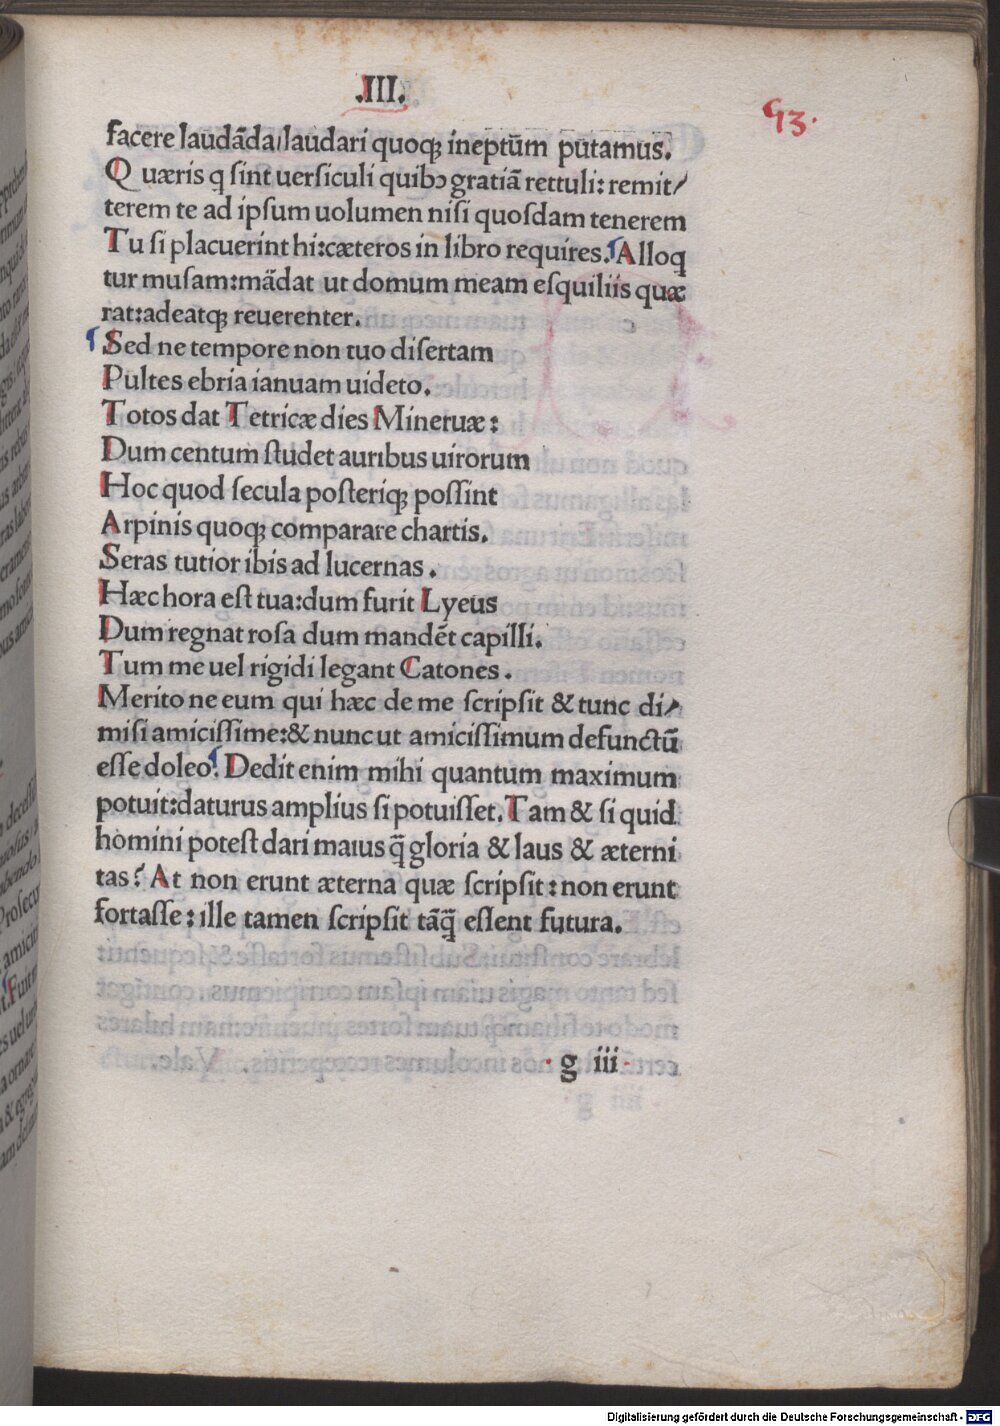 .III.
93.
facere laudāda/laudari quoqꝫ ineptūm putamus.
Quæris q sint uersiculi quibꝰ gratiā rettuli: remit/
terem te ad ipsum uolumen nisi quosdam tenerem
Tu si placuerint hi:cæteros in libro requires. Alloq
tur musam:mādat ut domum meam esquiliis quæ
rat:adeatqꝫ reuerenter.
Sed ne tempore non tuo disertam
Pultes ebria ianuam uideto.
Totos dat Tetricæ dies Mineruæ:
Dum centum studet auribus uirorum
Hoc quod secula posteriqꝫ possint
Arpinis quoqꝫ comparare chartis.
Seras tutior ibis ad lucernas.
Hæc hora est tua:dum furit Lyeus
Dum regnat rosa dum mandēt capilli.
Tum me uel rigidi legant Catones.
Merito ne eum qui hæc de me scripsit & tunc di/
misi amicissime:& nunc ut amicissimum defunctū
esse doleo. Dedit enim mihi quantum maximum
potuit:daturus amplius si potuisset. Tam & si quid
homini potest dari maius q̄ gloria & laus & æterni
tas? At non erunt æterna quæ scripsit: non erunt
fortasse: ille tamen scripsit tāq̄ essent futura.
g iii
Digitalisierung gefördert durch die Deutsche Forschungsgemeinschaft - DFG